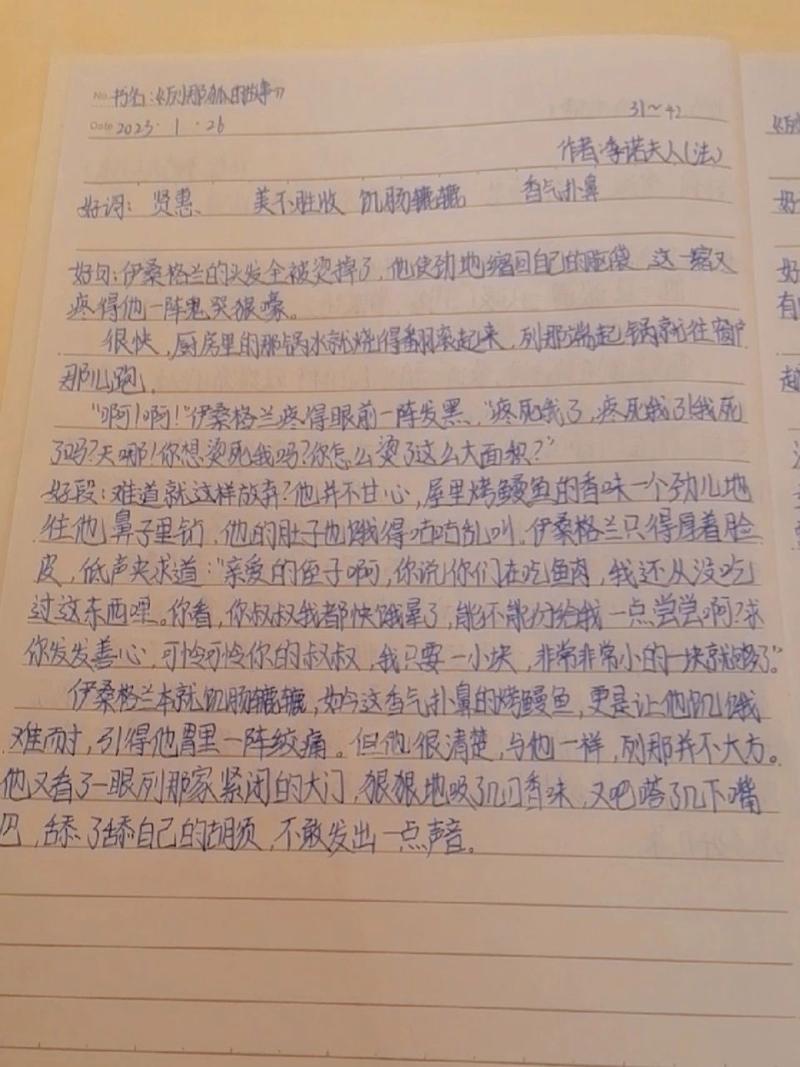 No. 书名:《列那狐的故事》
31~42
Date 2023.1.26
作者:季诺夫人(法)
好词: 贤惠、 美不胜收 饥肠辘辘 香气扑鼻
好句:伊桑格兰的头发全被烫掉了,他使劲地缩回自己的脑袋 这一缩又
疼得他一阵鬼哭狼嚎。
很快,厨房里的那锅水就烧得翻滚起来,列那端起锅就往窗户
那儿跑.
"啊!啊!"伊桑格兰疼得眼前一阵发黑,"疼死我了,疼死我了!我死
了吗?天哪!你想烫死我吗?你怎么烫了这么大面积?"
好段:难道就这样放弃?他并不甘心,屋里烤鳗鱼的香味一个劲儿地
往他鼻子里钻,他的肚子也饿得咕咕乱叫。伊桑格兰只得厚着脸
皮,低声央求道:"亲爱的侄子啊,你说你们在吃鱼肉,我还从没吃
过这东西哩。你看,你叔叔我都快饿晕了,能不能分给我一点尝尝啊?求
你发发善心,可怜可怜你的叔叔,我只要一小块,非常非常小的一块就够了。"
伊桑格兰本就饥肠辘辘,如今这香气扑鼻的烤鳗鱼,更是让他饥饿
难耐,引得他胃里一阵绞痛。但他很清楚,与他一样,列那并不大方。
他又看了一眼列那家紧闭的大门,狠狠地吸了几口香味,又吧嗒了几下嘴
巴,舔了舔自己的胡须,不敢发出一点声音。